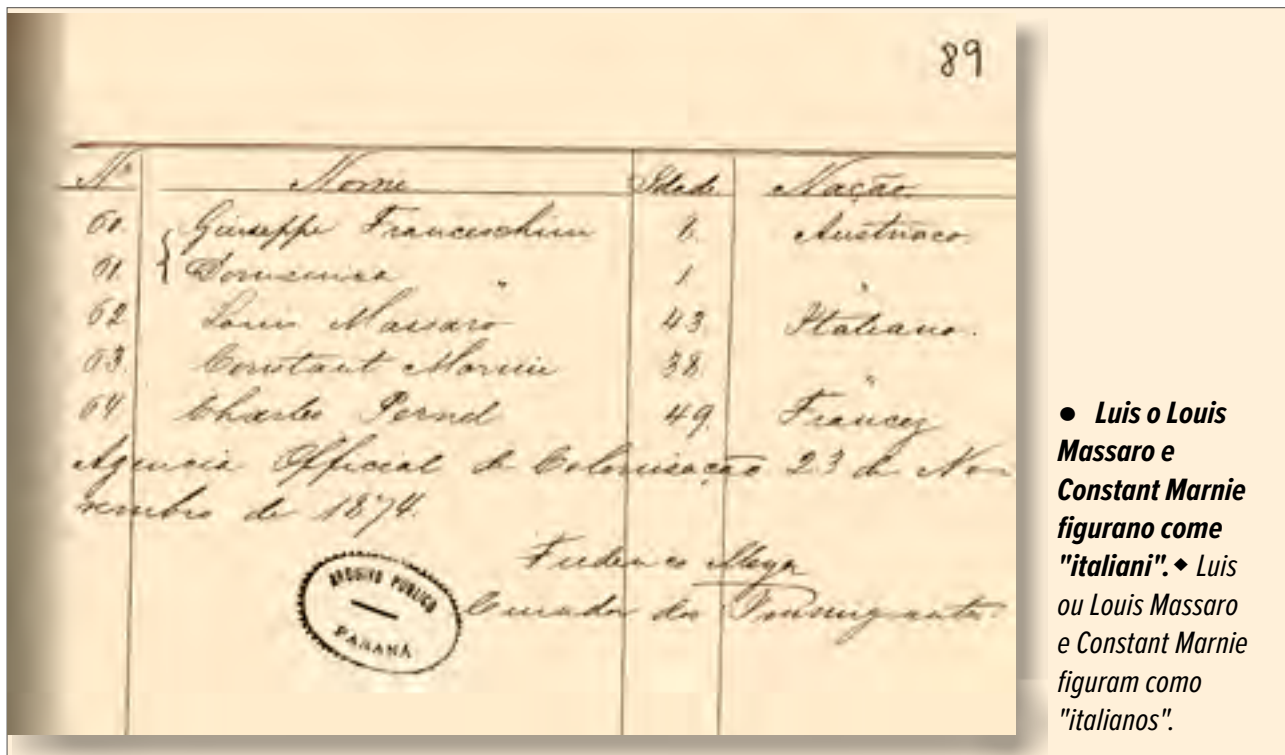 89
Nº Nome Idade Nação
60. Giuseppe Franceschini 6. Austriaco.
61. " 1 "
62 Louis Massaro 43. Italiano.
63. Constant Marnie 38. "
64 Charles Pernel 49. Francez
Agencia Official de Colonisação 23 de No-
vembro de 1874.
Curador dos Immigrantes.
ARCHIVO PUBLICO
PARANÁ
● Luis o Louis
Massaro e
Constant Marnie
figurano come
"italiani". ◆ Luis
ou Louis Massaro
e Constant Marnie
figuram como
"italianos".